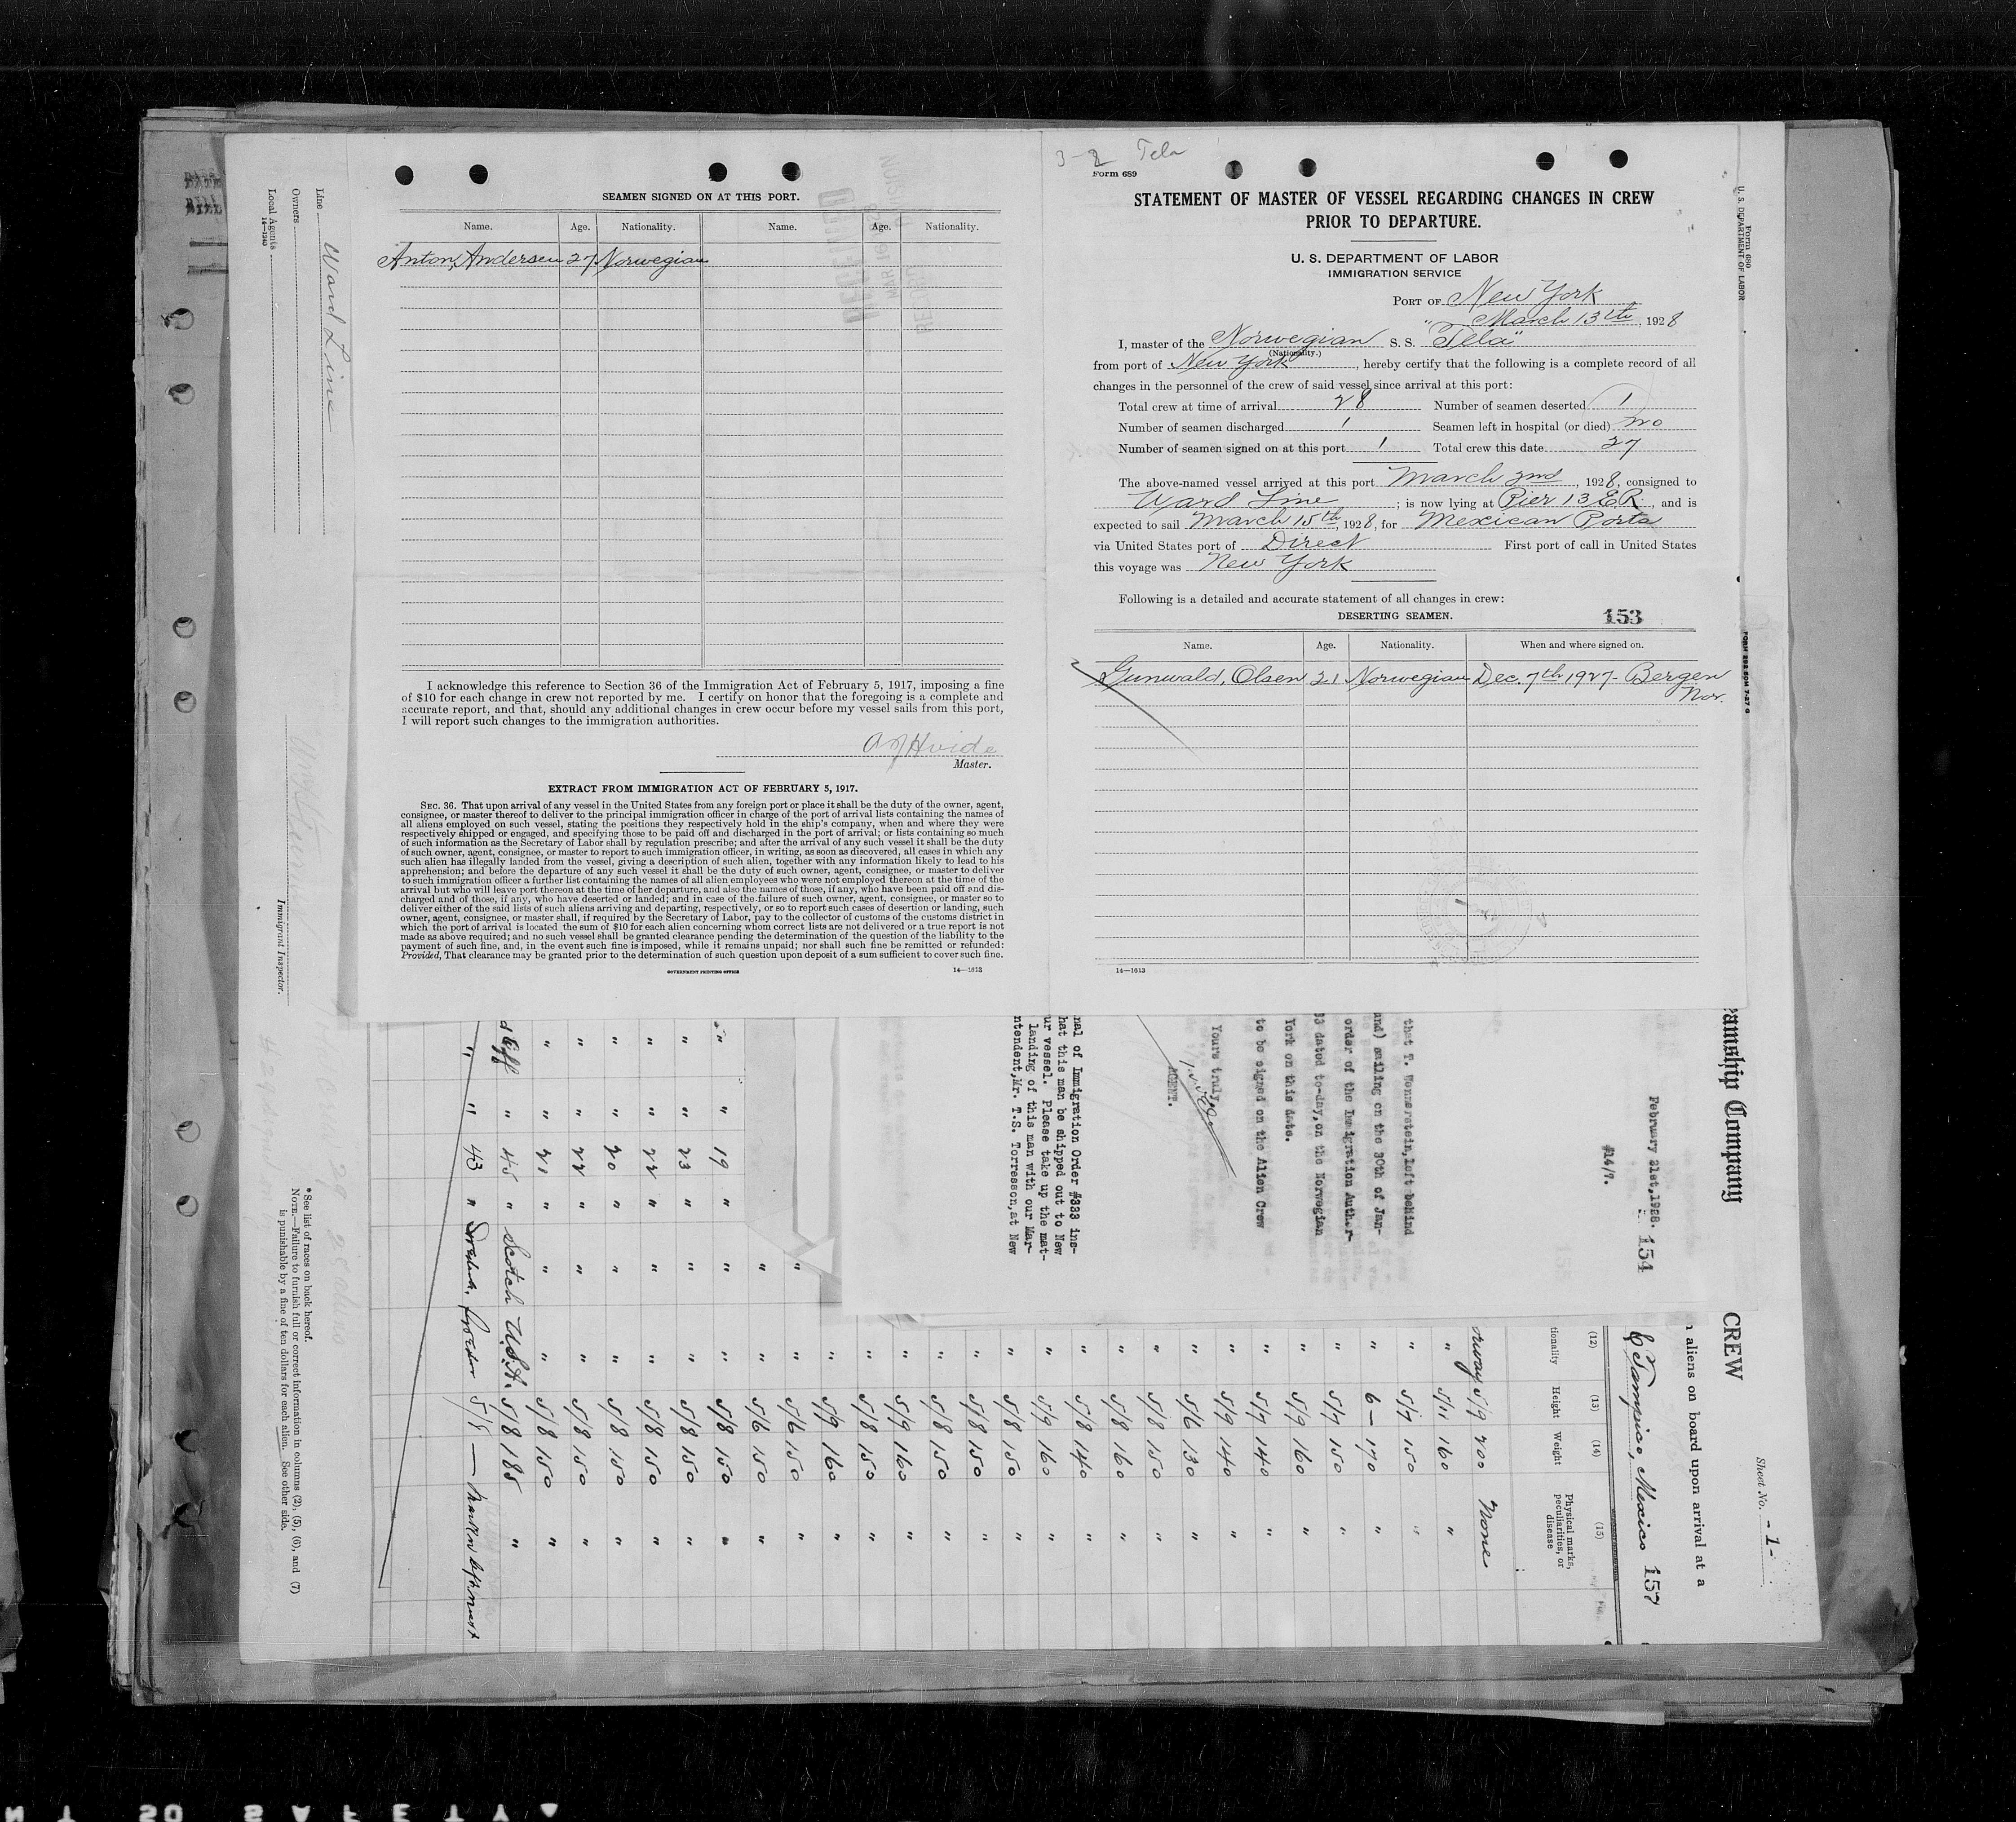 SEAMEN SIGNED ON AT THIS PORT.
Name. Age. Nationality. Name. Age. Nationality.
Anton, Andersen 27 Norwegian
I acknowledge this reference to Section 36 of the Immigration Act of February 5, 1917, imposing a fine
of $10 for each change in crew not reported by me. I certify on honor that the foregoing is a complete and
accurate report, and that, should any additional changes in crew occur before my vessel sails from this port,
I will report such changes to the immigration authorities.
Hvide
Master.
EXTRACT FROM IMMIGRATION ACT OF FEBRUARY 5, 1917.
SEC. 36. That upon arrival of any vessel in the United States from any foreign port or place it shall be the duty of the owner, agent,
consignee, or master thereof to deliver to the principal immigration officer in charge of the port of arrival lists containing the names of
all aliens employed on such vessel, stating the positions they respectively hold in the ship's company, when and where they were
respectively shipped or engaged, and specifying those to be paid off and discharged in the port of arrival; or lists containing so much
of such information as the Secretary of Labor shall by regulation prescribe; and after the arrival of any such vessel it shall be the duty
of such owner, agent, consignee, or master to report to such immigration officer, in writing, as soon as discovered, all cases in which any
such alien has illegally landed from the vessel, giving a description of such alien, together with any information likely to lead to his
apprehension; and before the departure of any such vessel it shall be the duty of such owner, agent, consignee, or master to deliver
to such immigration officer a further list containing the names of all alien employees who were not employed thereon at the time of the
arrival but who will leave port thereon at the time of her departure, and also the names of those, if any, who have been paid off and dis-
charged and of those, if any, who have deserted or landed; and in case of the failure of such owner, agent, consignee, or master so to
deliver either of the said lists of such aliens arriving and departing, respectively, or so to report such cases of desertion or landing, such
owner, agent, consignee, or master shall, if required by the Secretary of Labor, pay to the collector of customs of the customs district in
which the port of arrival is located the sum of $10 for each alien concerning whom correct lists are not delivered or a true report is not
made as above required; and no such vessel shall be granted clearance pending the determination of the question of the liability to the
payment of such fine, and, in the event such fine is imposed, while it remains unpaid; nor shall such fine be remitted or refunded:
Provided, That clearance may be granted prior to the determination of such question upon deposit of a sum sufficient to cover such fine.
GOVERNMENT PRINTING OFFICE 14—1613
3-2 Tela
Form 689
STATEMENT OF MASTER OF VESSEL REGARDING CHANGES IN CREW
PRIOR TO DEPARTURE.
U. S. DEPARTMENT OF LABOR
IMMIGRATION SERVICE
PORT OF New York
March 13th, 1928
I, master of the Norwegian S. S. "Tela"
(Nationality.)
from port of New York, hereby certify that the following is a complete record of all
changes in the personnel of the crew of said vessel since arrival at this port:
Total crew at time of arrival 28 Number of seamen deserted 1
Number of seamen discharged 1 Seamen left in hospital (or died) no
Number of seamen signed on at this port 1 Total crew this date 27
The above-named vessel arrived at this port March 2nd, 1928, consigned to
Ward Line; is now lying at Pier 13 E.R., and is
expected to sail March 15th, 1928, for Mexican Ports
via United States port of Direct First port of call in United States
this voyage was New York
Following is a detailed and accurate statement of all changes in crew:
DESERTING SEAMEN. 153
Name. Age. Nationality. When and where signed on.
Gunwald, Olsen 21 Norwegian Dec. 7th 1927- Bergen
Nor.
14—1613
Line Ward Line
Owners
Local Agents
14—1240
Immigrant Inspector.
* See list of races on back hereof.
NOTE.—Failure to furnish full or correct information in columns (2), (5), (6), and (7)
is punishable by a fine of ten dollars for each alien. See other side.
Form 680
U. S. DEPARTMENT OF LABOR
amship Company
February 21st,1928. 154
#14/7.
that T. left behind
and) sailing on the 30th of Jan-
order of the Immigration Author-
33 dated to-day,on the Norwegian
York on this date.
to be signed on the Alien Crew
Yours truly,
AGENT.
nal of Immigration Order #333 ins-
hat this man be shipped out to New
ur vessel. Please take up the mat-
landing of this man with our Mar-
ntendent,Mr. T.S. Torresson,at New
Sheet No. -1-
CREW
aliens on board upon arrival at a
Tampico, Mexico 157
(12) (13) (14) (15)
tionality Height Weight Physical marks, peculiarities, or disease
5/9 200 None
" 5/11 160 "
" 5/7 150 "
" 6- 170 "
" 5/7 150 "
" 5/9 160 "
" 5/7 140 "
" 5/9 140 "
" 5/6 130 "
" 5/8 150 "
" 5/8 160 "
" 5/8 140 "
" 5/9 160 "
" 5/8 150 "
" 5/8 150 "
" 5/8 150 "
" 5/9 160 "
" 5/8 150 "
" 5/9 160 "
" " 5/6 150 "
" " 5/6 150 "
" " 19 " " " 5/8 150 "
" " 23 " " " 5/8 150 "
" " 22 " " " 5/8 150 "
" " 20 " " " 5/8 150 "
" " 22 " " " 5/8 150 "
" " 21 " " " 5/8 150 "
" 45 " Scotch U.S.A. 5/8 185 "
" " 43 "